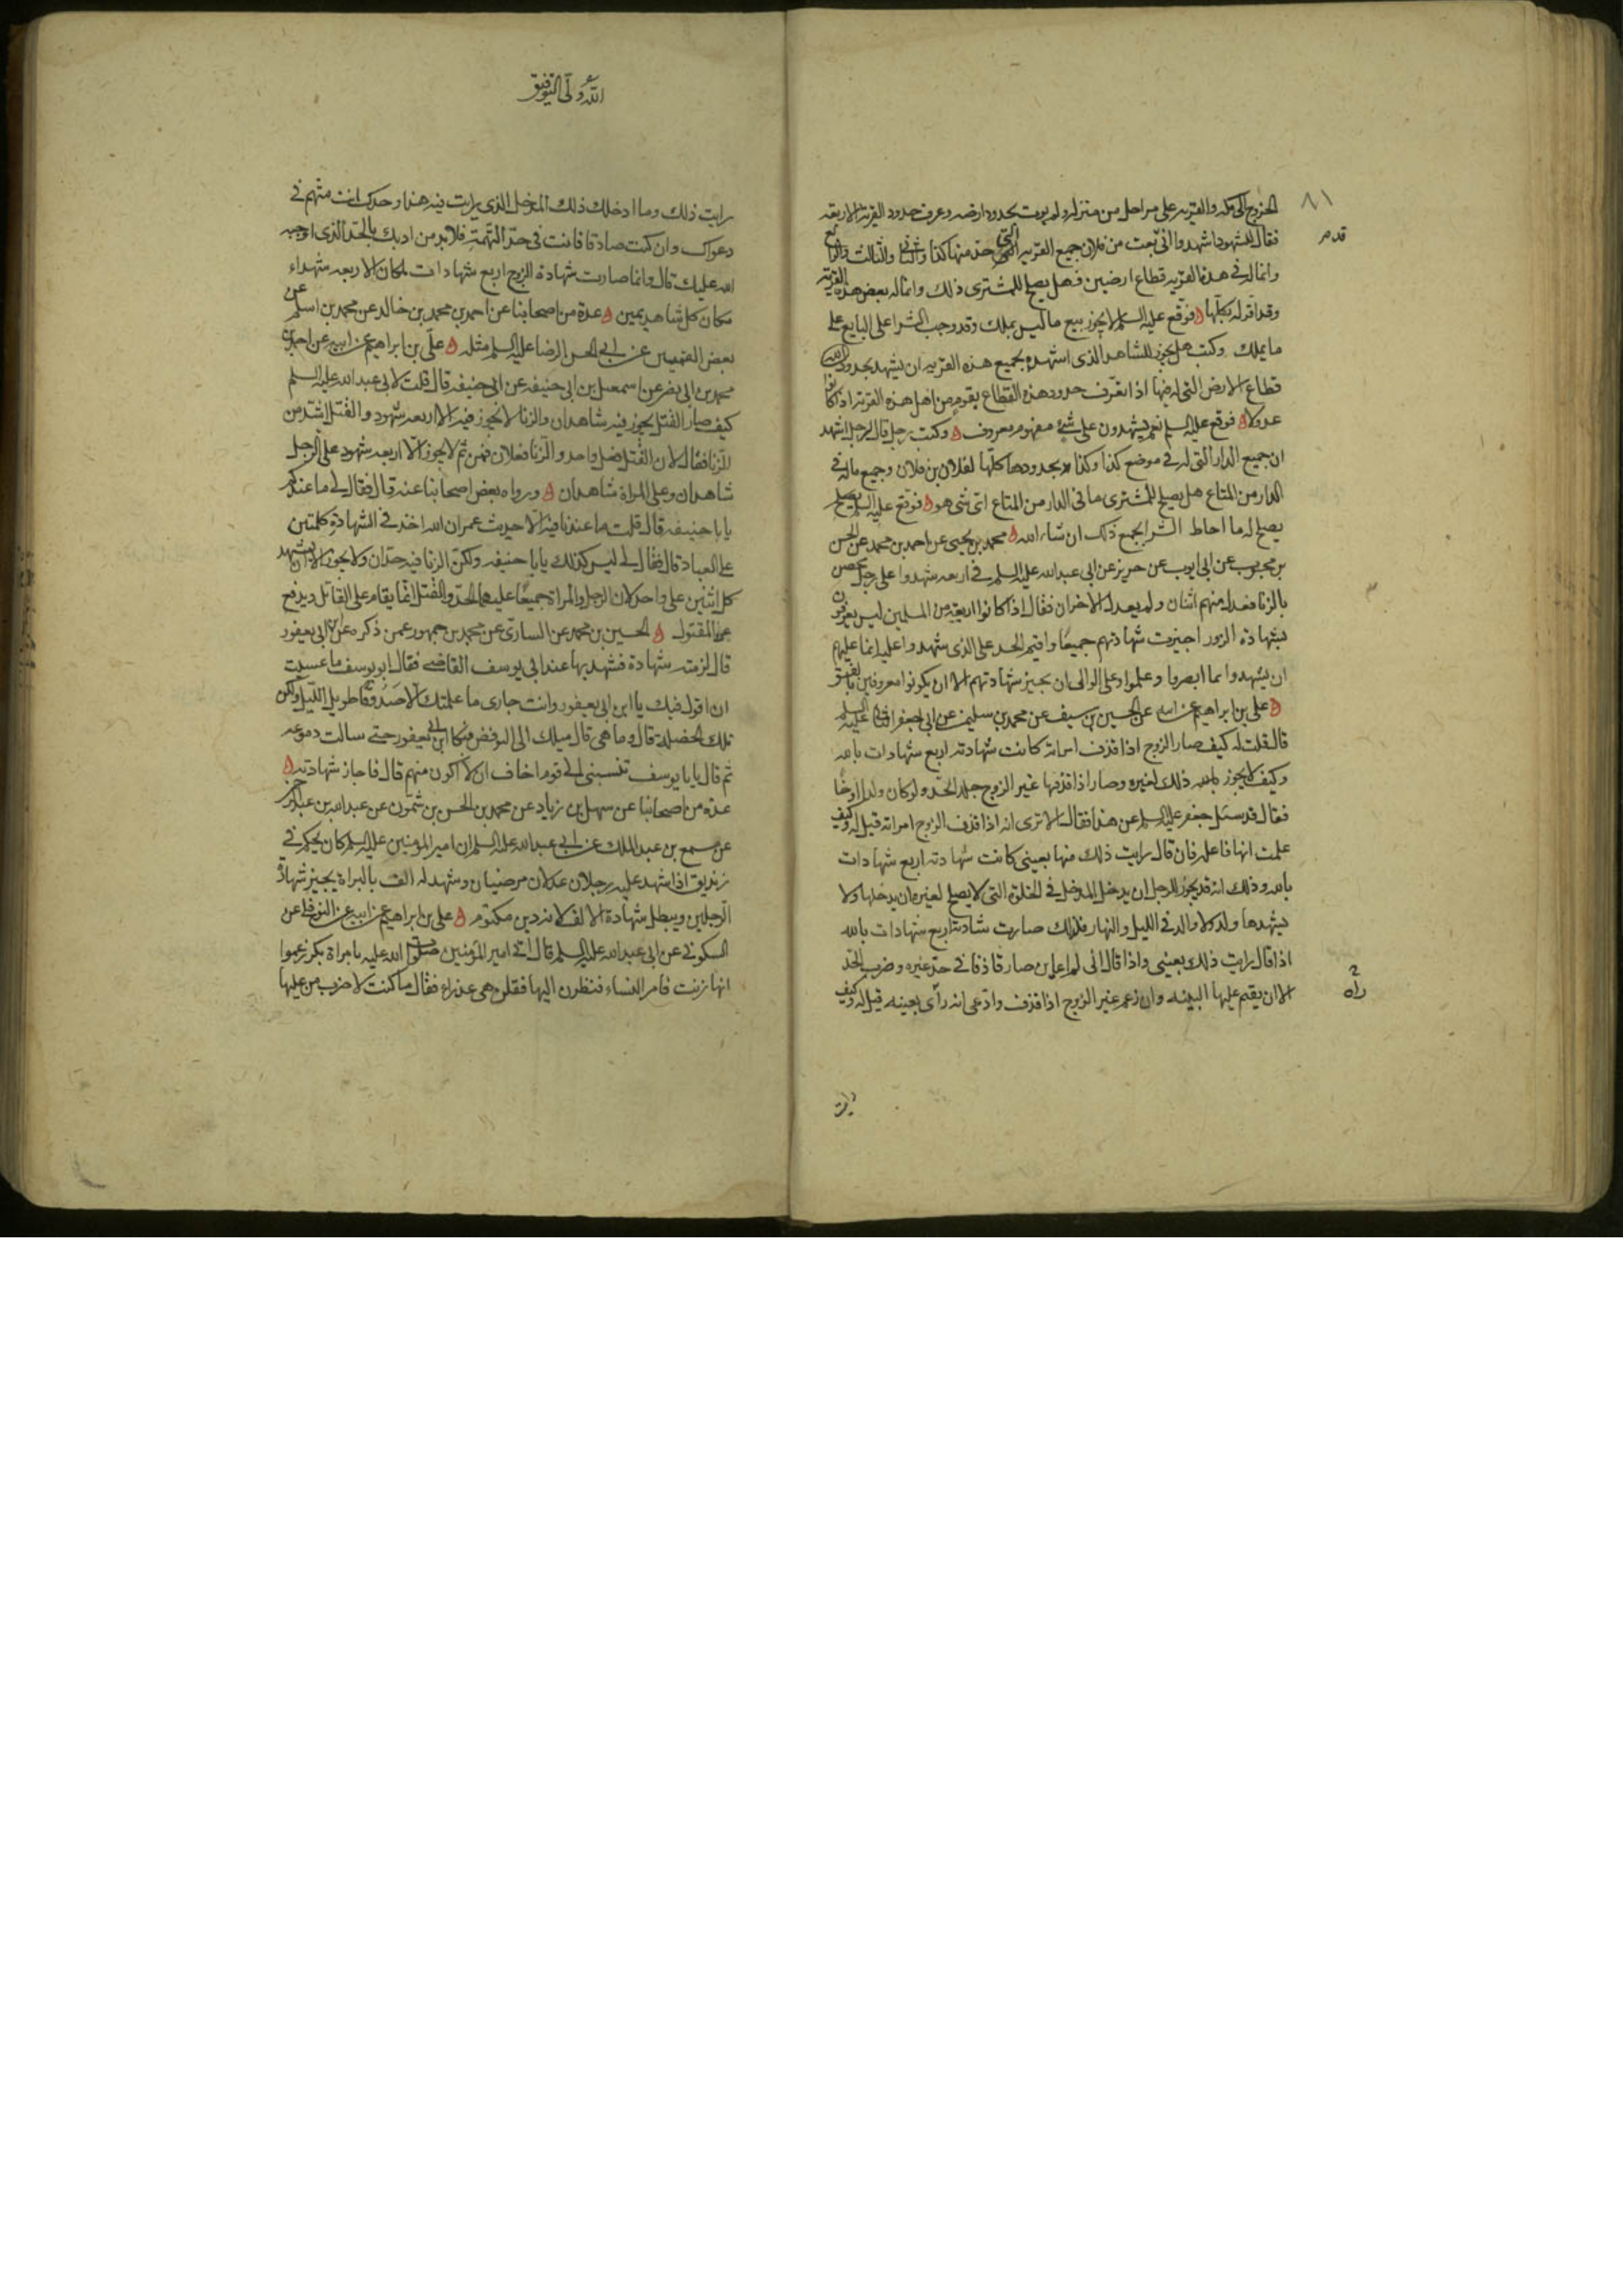 ٨١
الخروج الى مكه والقريه على مراحل من منزله ولم يوت بحدود ارضه وعرف حدود القرية الاربعه
قدم
فقال للشهود اشهدوا انى بعت من فلان جميع القريه التى حد منها كذا والثانى والثالث والرابع
وانما له فى هذه القريه قطاع ارضين فهل يصلح للمشترى ذلك وانما له بعض هذه القرية
وقد اقر له بكلها فوقع عليه السلم لا يجوز بيع ما ليس يملك وقد وجب الشرا على البايع على
ما يملك وكتب هل يجوز للشاهد الذى اشهده بجميع هذه القريه ان يشهد بحدود
قطاع الارض التى له فيها اذا تعرف حدود هذه القطاع بقوم من اهل هذه القرية اذا كانوا
عدولا فوقع عليه السلم نعم يشهدون على شئ مفهوم معروف وكتب رجل قال لرجل اشهد
ان جميع الدار التى له فى موضع كذا وكذا بحدودها كلها لفلان بن فلان وجميع ماله فى
الدار من المتاع هل يصلح للمشترى ما فى الدار من المتاع اى شى هو فوقع عليه السلم يصلح
يصلح له ما احاط الشرا بجميع ذلك ان شاء الله محمد بن يحيى عن احمد بن محمد عن الحسن
بن محبوب عن ابى ايوب عن حريز عن ابى عبدالله عليه السلم فى اربعه شهدوا على رجل محصن
بالزنا فعدل منهم اثنان ولم يعدل الاخران فقال اذا كانوا اربعة من المسلمين ليس يعرفون
بشهادة الزور اجيزت شهادتهم جميعا واقيم الحد على الذى شهدوا عليه انما عليهم
ان يشهدوا بما ابصروا وعلموا وعلى الوالى ان يجيز شهادتهم الا ان يكونوا معروفين بالفسق
على بن ابراهيم عن ابيه عن الحسين بن سيف عن محمد بن سليمن عن ابى جعفر الثانى عليه السلم
قال قلت له كيف صار الزوج اذا قذف امراته كانت شهادته اربع شهادات بالله
وكيف لا يجوز ذلك لغيره وصار اذا قذفها غير الزوج جلد الحد ولو كان ولدا او اخا
فقال قد سئل جعفر عليه السلم عن هذا فقال الا ترى انه اذا قذف الزوج امراته قيل له وكيف
علمت انها فاعله فان قال رايت ذلك منها بعينى كانت شهادته اربع شهادات
بالله وذلك انه قد يجوز للرجل ان يدخل المدخل فى الخلوة التى لا يصلح لغيره ان يدخلها ولا
يشهدها ولد ولا والد فى الليل والنهار فلذلك صارت شهادته اربع شهادات بالله
اذا قال رايت ذلك بعينى واذا قال انى لم اعاين صار قاذفا فى حد غيره وضرب الحد
الا ان يقيم عليها البينه وان زعم غير الزوج اذا قذف وادعى انه رأى بعينه قيل له وكيف
راه
رايت
الله ولى التوفيق
رايت ذلك وما ادخلك ذلك المدخل الذى رايت فيه هذا وحدك انت متهم فى
دعواك وان كنت صادقا فانت فى حد التهمة فلا بد من ادبك بالحد الذى اوجبه
الله عليك قال وانما صارت شهادة الزوج اربع شهادات لمكان الاربعه شهداء
مكان كل شاهد يمين عدة من اصحابنا عن احمد بن محمد بن خالد عن محمد بن اسلم عن
بعض القميين عن ابى الحسن الرضا عليه السلم مثله على بن ابراهيم عن ابيه عن احمد بن
محمد بن ابى نصر عن اسمعيل بن ابى حنيفه عن ابى حنيفه قال قلت لابى عبدالله عليه السلم
كيف صار القتل يجوز فيه شاهدان والزنا لا يجوز فيه الا اربعه شهود والقتل اشد من
الزنا فقال لان القتل فعل واحد والزنا فعلان فمن ثم لا يجوز الا اربعه شهود على الرجل
شاهدان وعلى المراة شاهدان ورواه بعض اصحابنا عنه قال فقال لى ما عندكم
يا با حنيفه قال قلت ما عندنا فيه الا حديث عمر ان الله اخذ فى الشهادة كلمتين
على العباد قال فقال لى ليس كذلك يا با حنيفه ولكن الزنا فيه حدان ولا يجوز الا ان يشهد
كل اثنين على واحد لان الرجل والمراة جميعا عليهما الحد والقتل انما يقام على القاتل ويدفع
عن المقتول الحسين بن محمد عن السيارى عن محمد بن جمهور عمن ذكره عن ابن ابى يعفور
قال لزمته شهادة فشهد بها عند ابى يوسف القاضى فقال ابو يوسف ما عسيت
ان اقول فيك يا ابن ابى يعفور وانت جارى ما علمتك الا صدوقا طويل الليل ولكن
تلك الخصلة قال وما هى قال ميلك الى الرفض فبكا ابن ابى يعفور حتى سالت دموعه
ثم قال يا با يوسف تنسبنى الى قوم اخاف ان لا اكون منهم قال فاجاز شهادته
عدة من اصحابنا عن سهل بن زياد عن محمد بن الحسن بن شمون عن عبدالله بن عبدالرحمن
عن مسمع بن عبدالملك عن ابى عبدالله عليه السلم ان امير المومنين عليه السلم كان يحكم فى
زنديق اذا شهد عليه رجلان عدلان مرضيان وشهد له الف بالبراة يجيز شهادة
الرجلين ويبطل شهادة الالف لانه دين مكتوم على بن ابراهيم عن ابيه عن النوفلى عن
السكونى عن ابى عبدالله عليه السلم قال اتى امير المؤمنين صلوات الله عليه بامراة بكر زعموا
انها زنت فامر النساء فنظرن اليها فقلن هى عذراء فقال ما كنت لاضرب من عليها